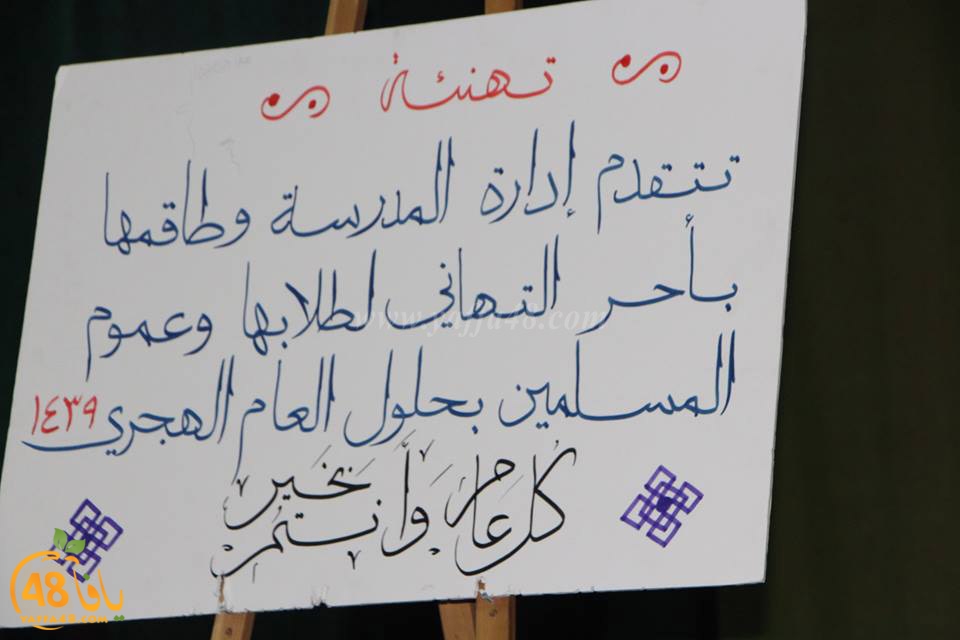 تهنئة
تتقدم إدارة المدرسة وطاقمها
بأحر التهاني لطلابها وعموم
المسلمين بحلول العام الهجري ١٤٣٩
كل عام وأنتم بخير
www.yaffa48.com
يافا 48
yaffa48.com